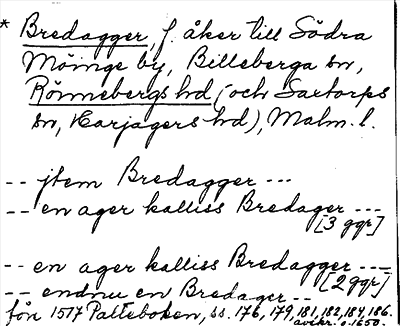 * Bredagger, f. åker till Södra
Möinge by, Billeberga sn,
Rönnebergs hd (och Saxtorps
sn, Harjagers hd), Malm. l.
-- jtem Bredagger ---
-- en ager kalliss Bredager ---
[3 ggr]
-- en ager kalliss Bredagger ---
[2 ggr]
-- endnu en Bredager --
fön 1517 Palteboken, ss. 176, 179, 181, 182, 184, 186.
avskr. c. 1650.